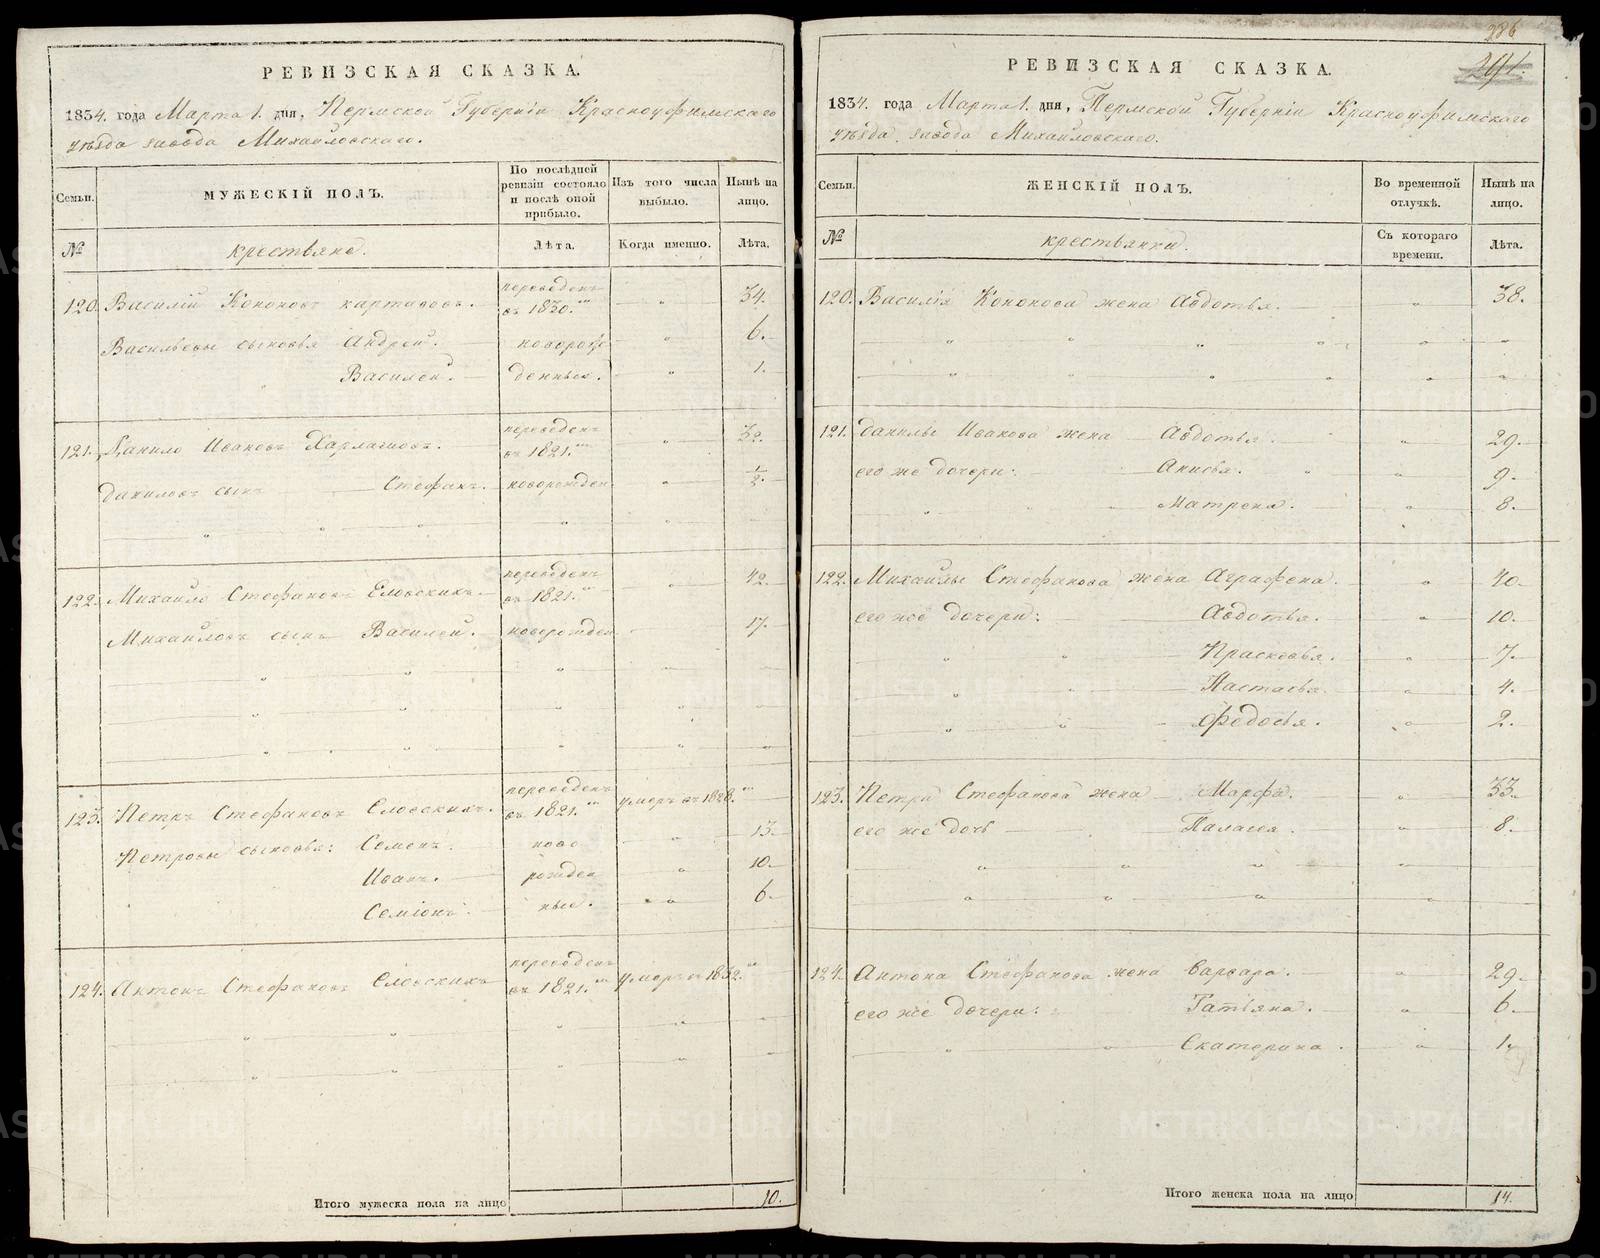 РЕВИЗСКАЯ СКАЗКА.
1834. года Марта 1. дня, Пермской Губерніи Красноуфимскаго
уѣзда завода Михайловскаго.
Семьи. МУЖЕСКІЙ ПОЛЪ. По послѣдней ревизіи состояло и послѣ оной прибыло. Изъ того числа выбыло. Нынѣ на лицо.
№ крестьяне. Лѣта. Когда именно. Лѣта.
120. Василій Кононовъ переведенъ въ 1830.мъ " 34.
Васильевы сыновья Андрей. новорож " 6.
Василей. денные. " 1.
121. Данило Ивановъ Харлашовъ. переведенъ въ 1821.мъ " 32.
Даниловъ сынъ Стефанъ. новорожден " 1/2.
122. Михайло Стефановъ Еловскихъ переведенъ въ 1821.мъ " 42.
Михайловъ сынъ Василей. новорожден " 17.
123. Петръ Стефановъ Еловскихъ. переведенъ въ 1821.мъ умеръ въ 1828.мъ
Петровы сыновья: Семенъ. ново " 13.
Иванъ. рожден " 10.
Семіонъ. ные. " 6.
124. Антонъ Стефановъ Еловскихъ переведенъ въ 1821.мъ умеръ въ 1832.мъ
Итого мужеска пола на лицо 10.
286
291.
РЕВИЗСКАЯ СКАЗКА.
1834. года Марта 1. дня, Пермской Губерніи Красноуфимскаго
уѣзда завода Михайловскаго.
Семьи. ЖЕНСКІЙ ПОЛЪ. Во временной отлучкѣ. Нынѣ на лицо.
№ крестьянки. Съ котораго времени. Лѣта.
120. Василія Кононова жена Авдотья. " 38.
121. Данилы Иванова жена Авдотья. " 29.
его же дочери: Анисья. " 9.
Матрена. " 8.
122. Михайлы Стефанова жена Аграфена. " 40.
его же дочери: Авдотья. " 10.
Прасковья. " 7.
Настасья. " 4.
Федосья. " 2.
123. Петра Стефанова жена Марфа. " 33.
его же дочь Палагея. " 8.
124. Антона Стефанова жена Варвара. " 29.
его же дочери: Татьяна. " 6.
Екатерина. " 1.
Итого женска пола на лицо 14.
METRIKI.GASO-URAL.RU